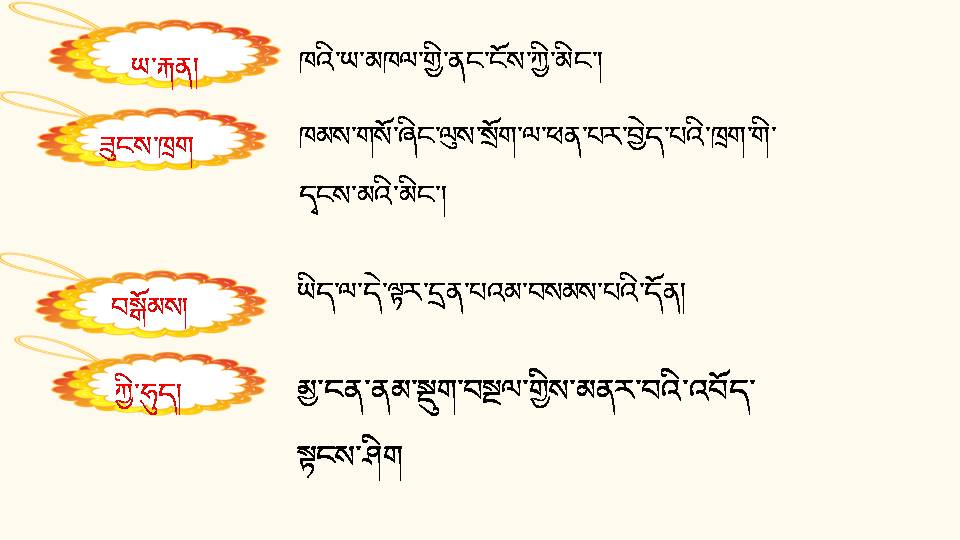 ཡ་རྐན།
ཁའི་ཡ་མཁལ་གྱི་ནང་ངོས་ཀྱི་མིང་།
ཟུངས་ཁྲག
ཁམས་གསོ་ཞིང་ལུས་སྲོག་ལ་ཕན་པར་བྱེད་པའི་ཁྲག་གི་
དྭངས་མའི་མིང་།
བསྒོམས།
ཡིད་ལ་དེ་ལྟར་དྲན་པའམ་བསམས་པའི་དོན།
ཀྱི་ཧུད།
མྱ་ངན་ནམ་སྡུག་བསྔལ་གྱིས་མནར་བའི་འབོད་
སྟངས་ཤིག